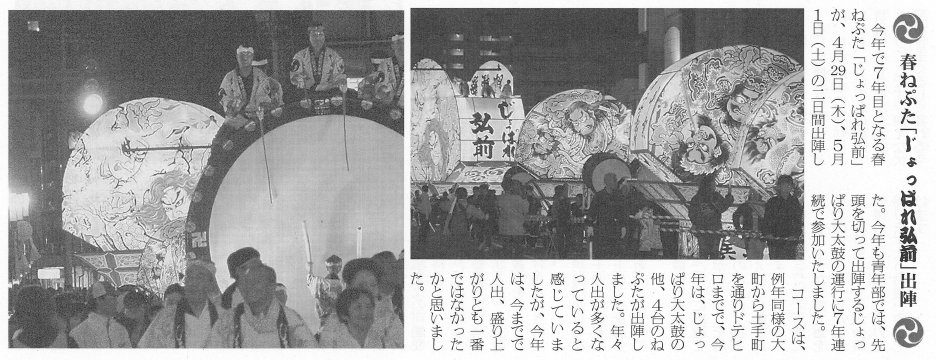 春ねぷた「じょっぱれ弘前」出陣
今年で７年目となる春
ねぷた「じょっぱれ弘前」
が、４月29日（木）、５月
１日（土）の二日間出陣し
た。今年も青年部では、先
頭を切って出陣するじょっ
ぱり大太鼓の運行に７年連
続で参加いたしました。
コースは、
例年同様の大
町から土手町
を通りドテヒ
ロまで、今
年は、じょっ
ぱり大太鼓の
他、４台のね
ぷたが出陣し
ました。年々
人出が多くな
っていると
感じていま
したが、今年
は、今までで
人出、盛り上
がりとも一番
ではなかった
かと思いまし
た。
弘前
卍